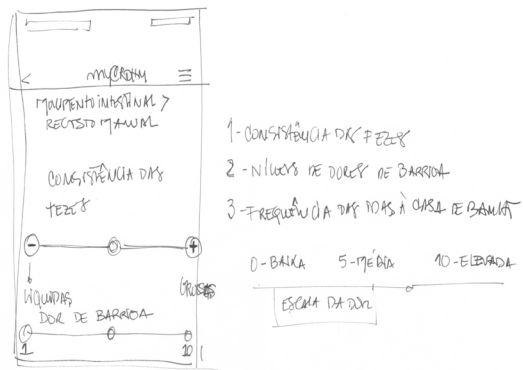 < myCROHN
MOVIMENTO INTESTINAL >
REGISTO MANUAL
CONSISTÊNCIA DAS
FEZES
- +
LÍQUIDAS
DOR DE BARRIGA
1 10
1 - CONSISTÊNCIA DAS FEZES
2 - NÍVEIS DE DORES DE BARRIGA
3 - FREQUÊNCIA DAS IDAS À CASA DE BANHO
0 - BAIXA 5 - MÉDIA 10 - ELEVADA
ESCALA DA DOR